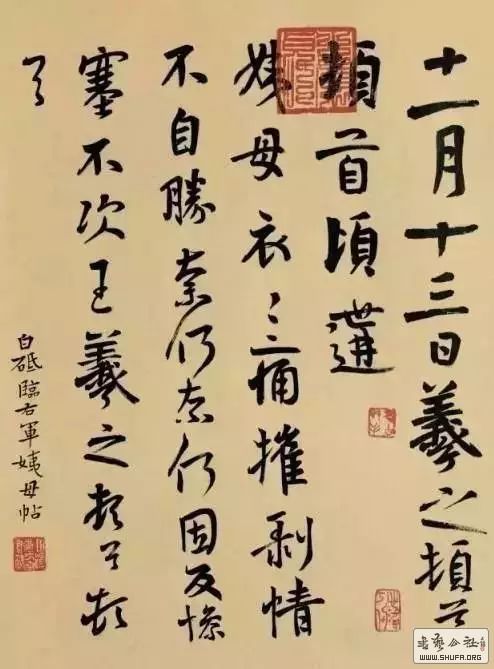 十一月十三日羲之頓首
頓首頃遘
姨母哀〻痛摧剥情
不自勝奈何奈何因反慘
塞不次王羲之頓首頓
首
白砥臨右軍姨母帖
書藝公社
WWW.SHUFA.ORG